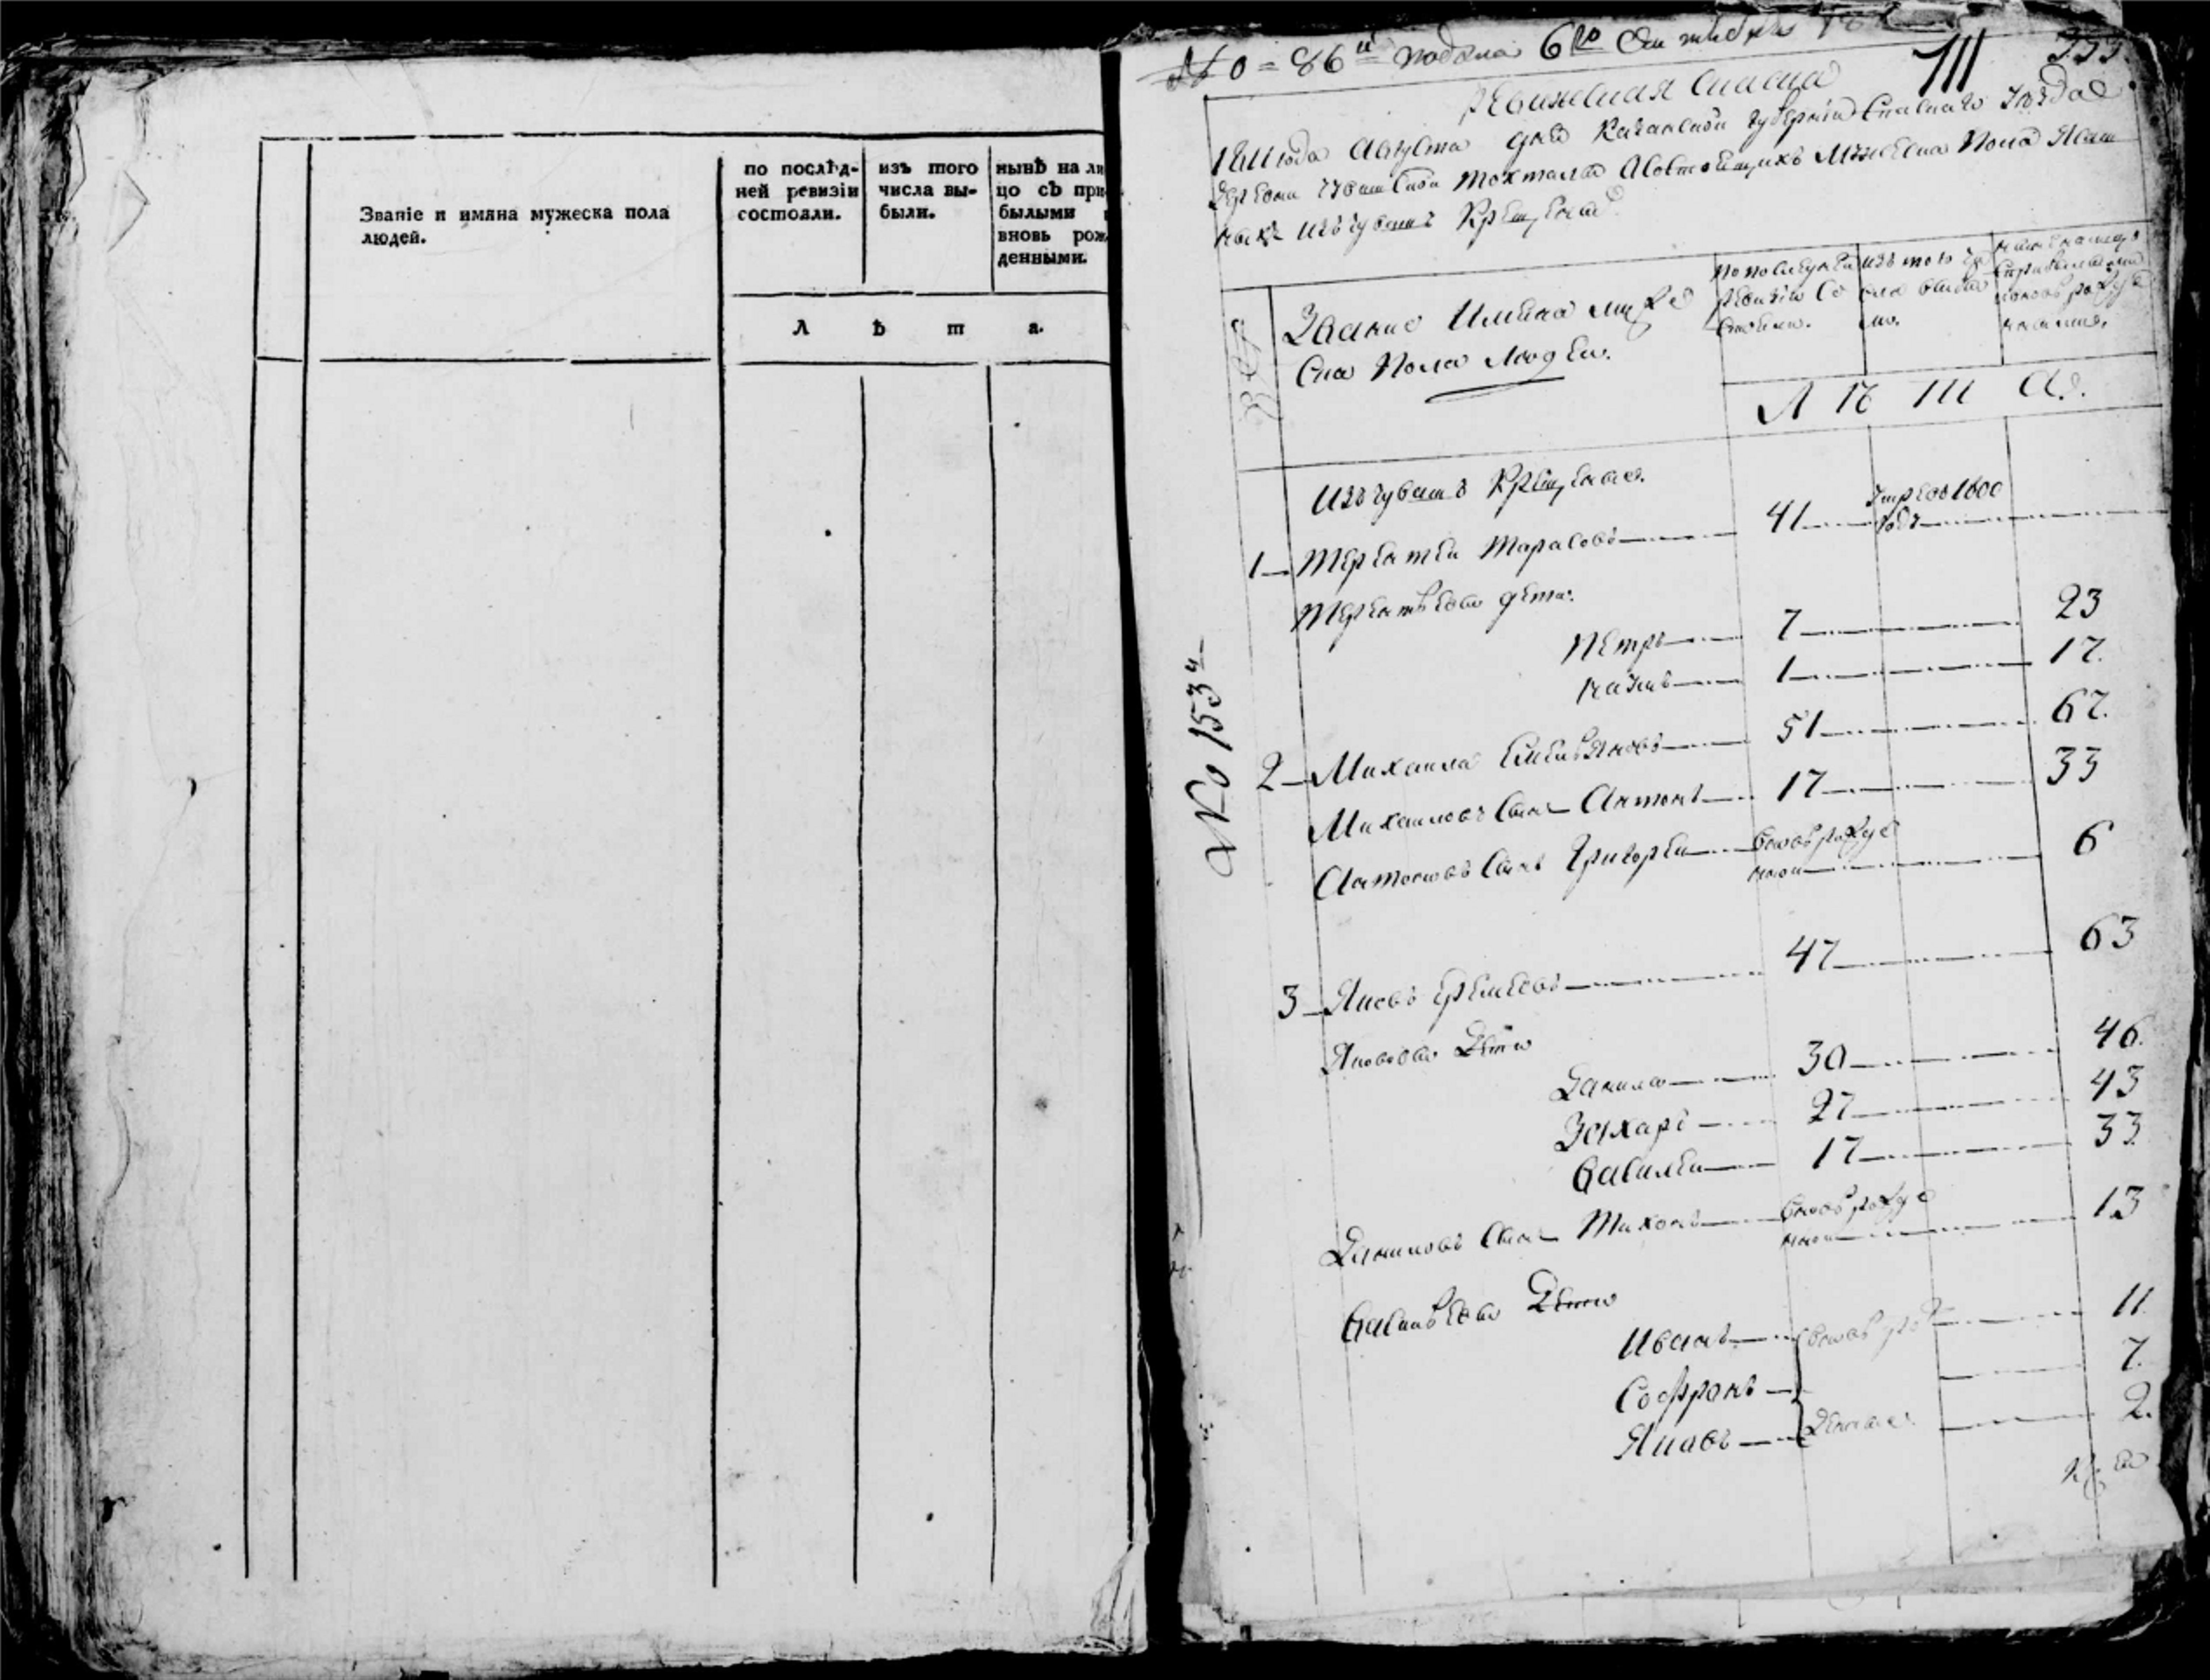 Званіе и имяна мужеска пола
людей.
по послѣд-
ней ревизіи
состояли.
изъ того
числа вы-
были.
нынѣ на ли
цо съ при
былыми
вновь рож
денными.
Л ѣ т а.
№ 0 = 86й подана 6го Сентября
353.
Ревижская Сказка
1811 года Августа дня Казанской Губернии Спаскаго уезда
деревни Чувашской Тохталы Мужеска пола Ясаш
ныхъ изъ чувашъ Крещеные
Звание Имена муже
ска пола людей.
по последней
ревизии со
стояли.
изъ того чи
сла выбы
ло.
ныне на лицо
с прибылыми
и вновь рожде
нными.
Л ѣ т а.
изъ чувашъ Крещеные.
1 Терентей Тарасовъ 41 умре въ 1800
годе
Терентьевы дети.
Петръ 7 23
1 17.
№ 1534
2 Михаила Емельяновъ 51 67.
Михаиловъ Сынъ Антонъ 17 33
Антоновъ Сынъ Григорей вновь рожде
нной 6
3 Яковъ Еремеевъ 47 63
Яковы Дети
Данила 30 46.
Захаръ 27 43
Савелей 17 33.
Даниловъ Сынъ Тихонъ вновь рожде
нной 13
Савельевы Дети
Иванъ вновь рож 11.
Софронъ 7.
Яковъ денные. 2.